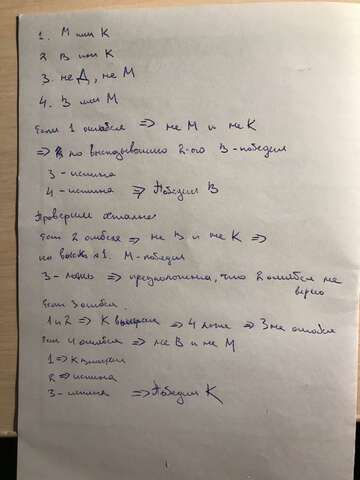 1. М или К
2 В или К
3. не Д, не М
4. В или М
Если 1 ошибся => не М и не К
=> по высказыванию 2-ого В-победил
3 - истина
4 - истина => Победил В
Проверим остальные
Если 2 ошибся => не В и не К =>
по выск №1. М-победил
3-ложь => предположение, что 2 ошибся не
верно
Если 3 ошибся
1 и 2 => К выиграл => 4 ложь => 3 не ошибся
Если 4 ошибся => не В и не М
1 => К выиграл
2 => истина
3 - истина => Победил К